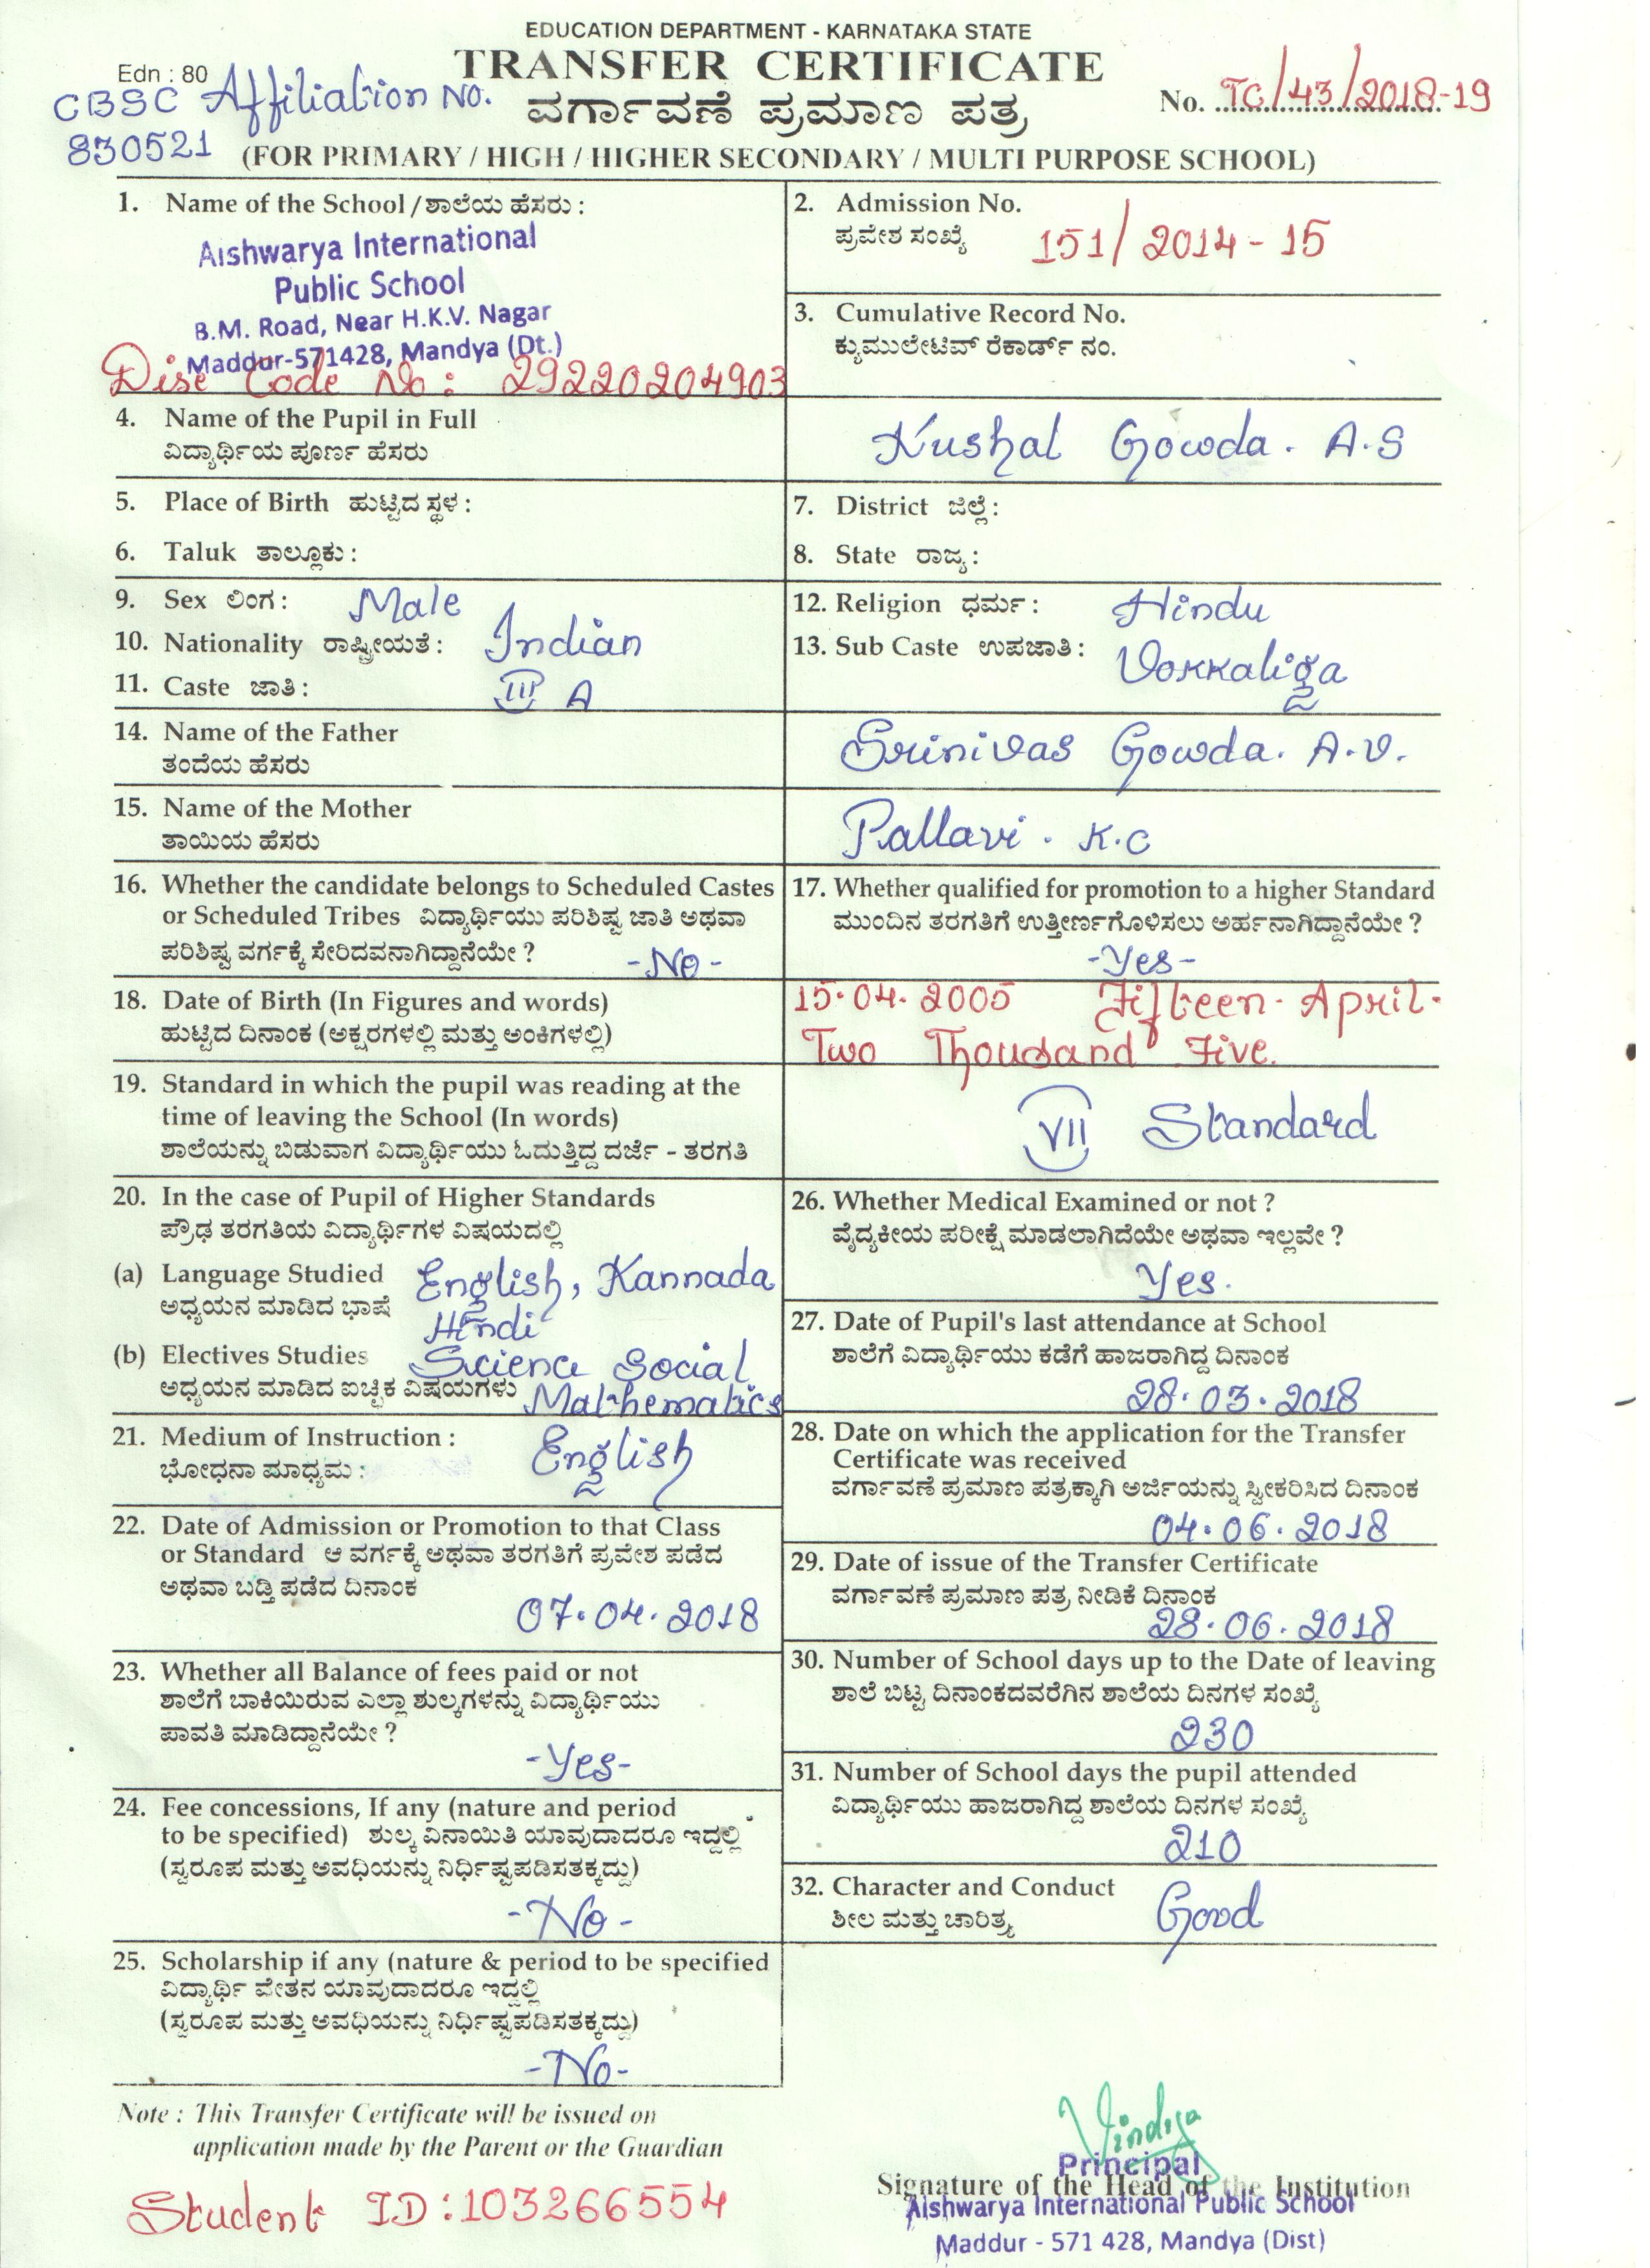 EDUCATION DEPARTMENT - KARNATAKA STATE
Edn : 80
TRANSFER CERTIFICATE
CBSC Affiliation NO.
830521
ವರ್ಗಾವಣೆ ಪ್ರಮಾಣ ಪತ್ರ
No. TC/43/2018-19
(FOR PRIMARY / HIGH / HIGHER SECONDARY / MULTI PURPOSE SCHOOL)
1. Name of the School / ಶಾಲೆಯ ಹೆಸರು :
Aishwarya International
Public School
B.M. Road, Near H.K.V. Nagar
Maddur-571428, Mandya (Dt.)
Dise Code No : 29220204903
2. Admission No.
ಪ್ರವೇಶ ಸಂಖ್ಯೆ 151/2014-15
3. Cumulative Record No.
ಕ್ಯುಮುಲೇಟಿವ್ ರೆಕಾರ್ಡ್ ನಂ.
4. Name of the Pupil in Full
ವಿದ್ಯಾರ್ಥಿಯ ಪೂರ್ಣ ಹೆಸರು
Kushal Gowda. A.S
5. Place of Birth ಹುಟ್ಟಿದ ಸ್ಥಳ :
6. Taluk ತಾಲ್ಲೂಕು :
7. District ಜಿಲ್ಲೆ :
8. State ರಾಜ್ಯ :
9. Sex ಲಿಂಗ : Male
10. Nationality ರಾಷ್ಟ್ರೀಯತೆ : Indian
11. Caste ಜಾತಿ : III A
12. Religion ಧರ್ಮ : Hindu
13. Sub Caste ಉಪಜಾತಿ : Vokkaliga
14. Name of the Father
ತಂದೆಯ ಹೆಸರು
Srinivas Gowda. A.V.
15. Name of the Mother
ತಾಯಿಯ ಹೆಸರು
Pallavi. K.C
16. Whether the candidate belongs to Scheduled Castes
or Scheduled Tribes ವಿದ್ಯಾರ್ಥಿಯು ಪರಿಶಿಷ್ಟ ಜಾತಿ ಅಥವಾ
ಪರಿಶಿಷ್ಟ ವರ್ಗಕ್ಕೆ ಸೇರಿದವನಾಗಿದ್ದಾನೆಯೇ ? -No-
17. Whether qualified for promotion to a higher Standard
ಮುಂದಿನ ತರಗತಿಗೆ ಉತ್ತೀರ್ಣಗೊಳಿಸಲು ಅರ್ಹನಾಗಿದ್ದಾನೆಯೇ ?
-Yes-
18. Date of Birth (In Figures and words)
ಹುಟ್ಟಿದ ದಿನಾಂಕ (ಅಕ್ಷರಗಳಲ್ಲಿ ಮತ್ತು ಅಂಕಿಗಳಲ್ಲಿ)
15.04.2005 Fifteen-April-
Two Thousand Five.
19. Standard in which the pupil was reading at the
time of leaving the School (In words)
ಶಾಲೆಯನ್ನು ಬಿಡುವಾಗ ವಿದ್ಯಾರ್ಥಿಯು ಓದುತ್ತಿದ್ದ ದರ್ಜೆ - ತರಗತಿ
VII Standard
20. In the case of Pupil of Higher Standards
ಪ್ರೌಢ ತರಗತಿಯ ವಿದ್ಯಾರ್ಥಿಗಳ ವಿಷಯದಲ್ಲಿ
(a) Language Studied English, Kannada
ಅಧ್ಯಯನ ಮಾಡಿದ ಭಾಷೆ Hindi
(b) Electives Studies Science Social
ಅಧ್ಯಯನ ಮಾಡಿದ ಐಚ್ಛಿಕ ವಿಷಯಗಳು Mathematics
21. Medium of Instruction : English
ಭೋಧನಾ ಮಾಧ್ಯಮ :
22. Date of Admission or Promotion to that Class
or Standard ಆ ವರ್ಗಕ್ಕೆ ಅಥವಾ ತರಗತಿಗೆ ಪ್ರವೇಶ ಪಡೆದ
ಅಥವಾ ಬಡ್ತಿ ಪಡೆದ ದಿನಾಂಕ
07.04.2018
23. Whether all Balance of fees paid or not
ಶಾಲೆಗೆ ಬಾಕಿಯಿರುವ ಎಲ್ಲಾ ಶುಲ್ಕಗಳನ್ನು ವಿದ್ಯಾರ್ಥಿಯು
ಪಾವತಿ ಮಾಡಿದ್ದಾನೆಯೇ ?
-Yes-
24. Fee concessions, If any (nature and period
to be specified) ಶುಲ್ಕ ವಿನಾಯಿತಿ ಯಾವುದಾದರೂ ಇದ್ದಲ್ಲಿ
(ಸ್ವರೂಪ ಮತ್ತು ಅವಧಿಯನ್ನು ನಿರ್ಧಿಷ್ಟಪಡಿಸತಕ್ಕದ್ದು)
-No-
25. Scholarship if any (nature & period to be specified
ವಿದ್ಯಾರ್ಥಿ ವೇತನ ಯಾವುದಾದರೂ ಇದ್ದಲ್ಲಿ
(ಸ್ವರೂಪ ಮತ್ತು ಅವಧಿಯನ್ನು ನಿರ್ಧಿಷ್ಟಪಡಿಸತಕ್ಕದ್ದು)
-No-
26. Whether Medical Examined or not ?
ವೈದ್ಯಕೀಯ ಪರೀಕ್ಷೆ ಮಾಡಲಾಗಿದೆಯೇ ಅಥವಾ ಇಲ್ಲವೇ ?
Yes.
27. Date of Pupil's last attendance at School
ಶಾಲೆಗೆ ವಿದ್ಯಾರ್ಥಿಯು ಕಡೆಗೆ ಹಾಜರಾಗಿದ್ದ ದಿನಾಂಕ
28.03.2018
28. Date on which the application for the Transfer
Certificate was received
ವರ್ಗಾವಣೆ ಪ್ರಮಾಣ ಪತ್ರಕ್ಕಾಗಿ ಅರ್ಜಿಯನ್ನು ಸ್ವೀಕರಿಸಿದ ದಿನಾಂಕ
04.06.2018
29. Date of issue of the Transfer Certificate
ವರ್ಗಾವಣೆ ಪ್ರಮಾಣ ಪತ್ರ ನೀಡಿಕೆ ದಿನಾಂಕ
28.06.2018
30. Number of School days up to the Date of leaving
ಶಾಲೆ ಬಿಟ್ಟ ದಿನಾಂಕದವರೆಗಿನ ಶಾಲೆಯ ದಿನಗಳ ಸಂಖ್ಯೆ
230
31. Number of School days the pupil attended
ವಿದ್ಯಾರ್ಥಿಯು ಹಾಜರಾಗಿದ್ದ ಶಾಲೆಯ ದಿನಗಳ ಸಂಖ್ಯೆ
210
32. Character and Conduct
ಶೀಲ ಮತ್ತು ಚಾರಿತ್ರ್ಯ Good
Note : This Transfer Certificate will be issued on
application made by the Parent or the Guardian
Student ID : 103266554
Vindya
Principal
Signature of the Head of the Institution
Aishwarya International Public School
Maddur - 571 428, Mandya (Dist)